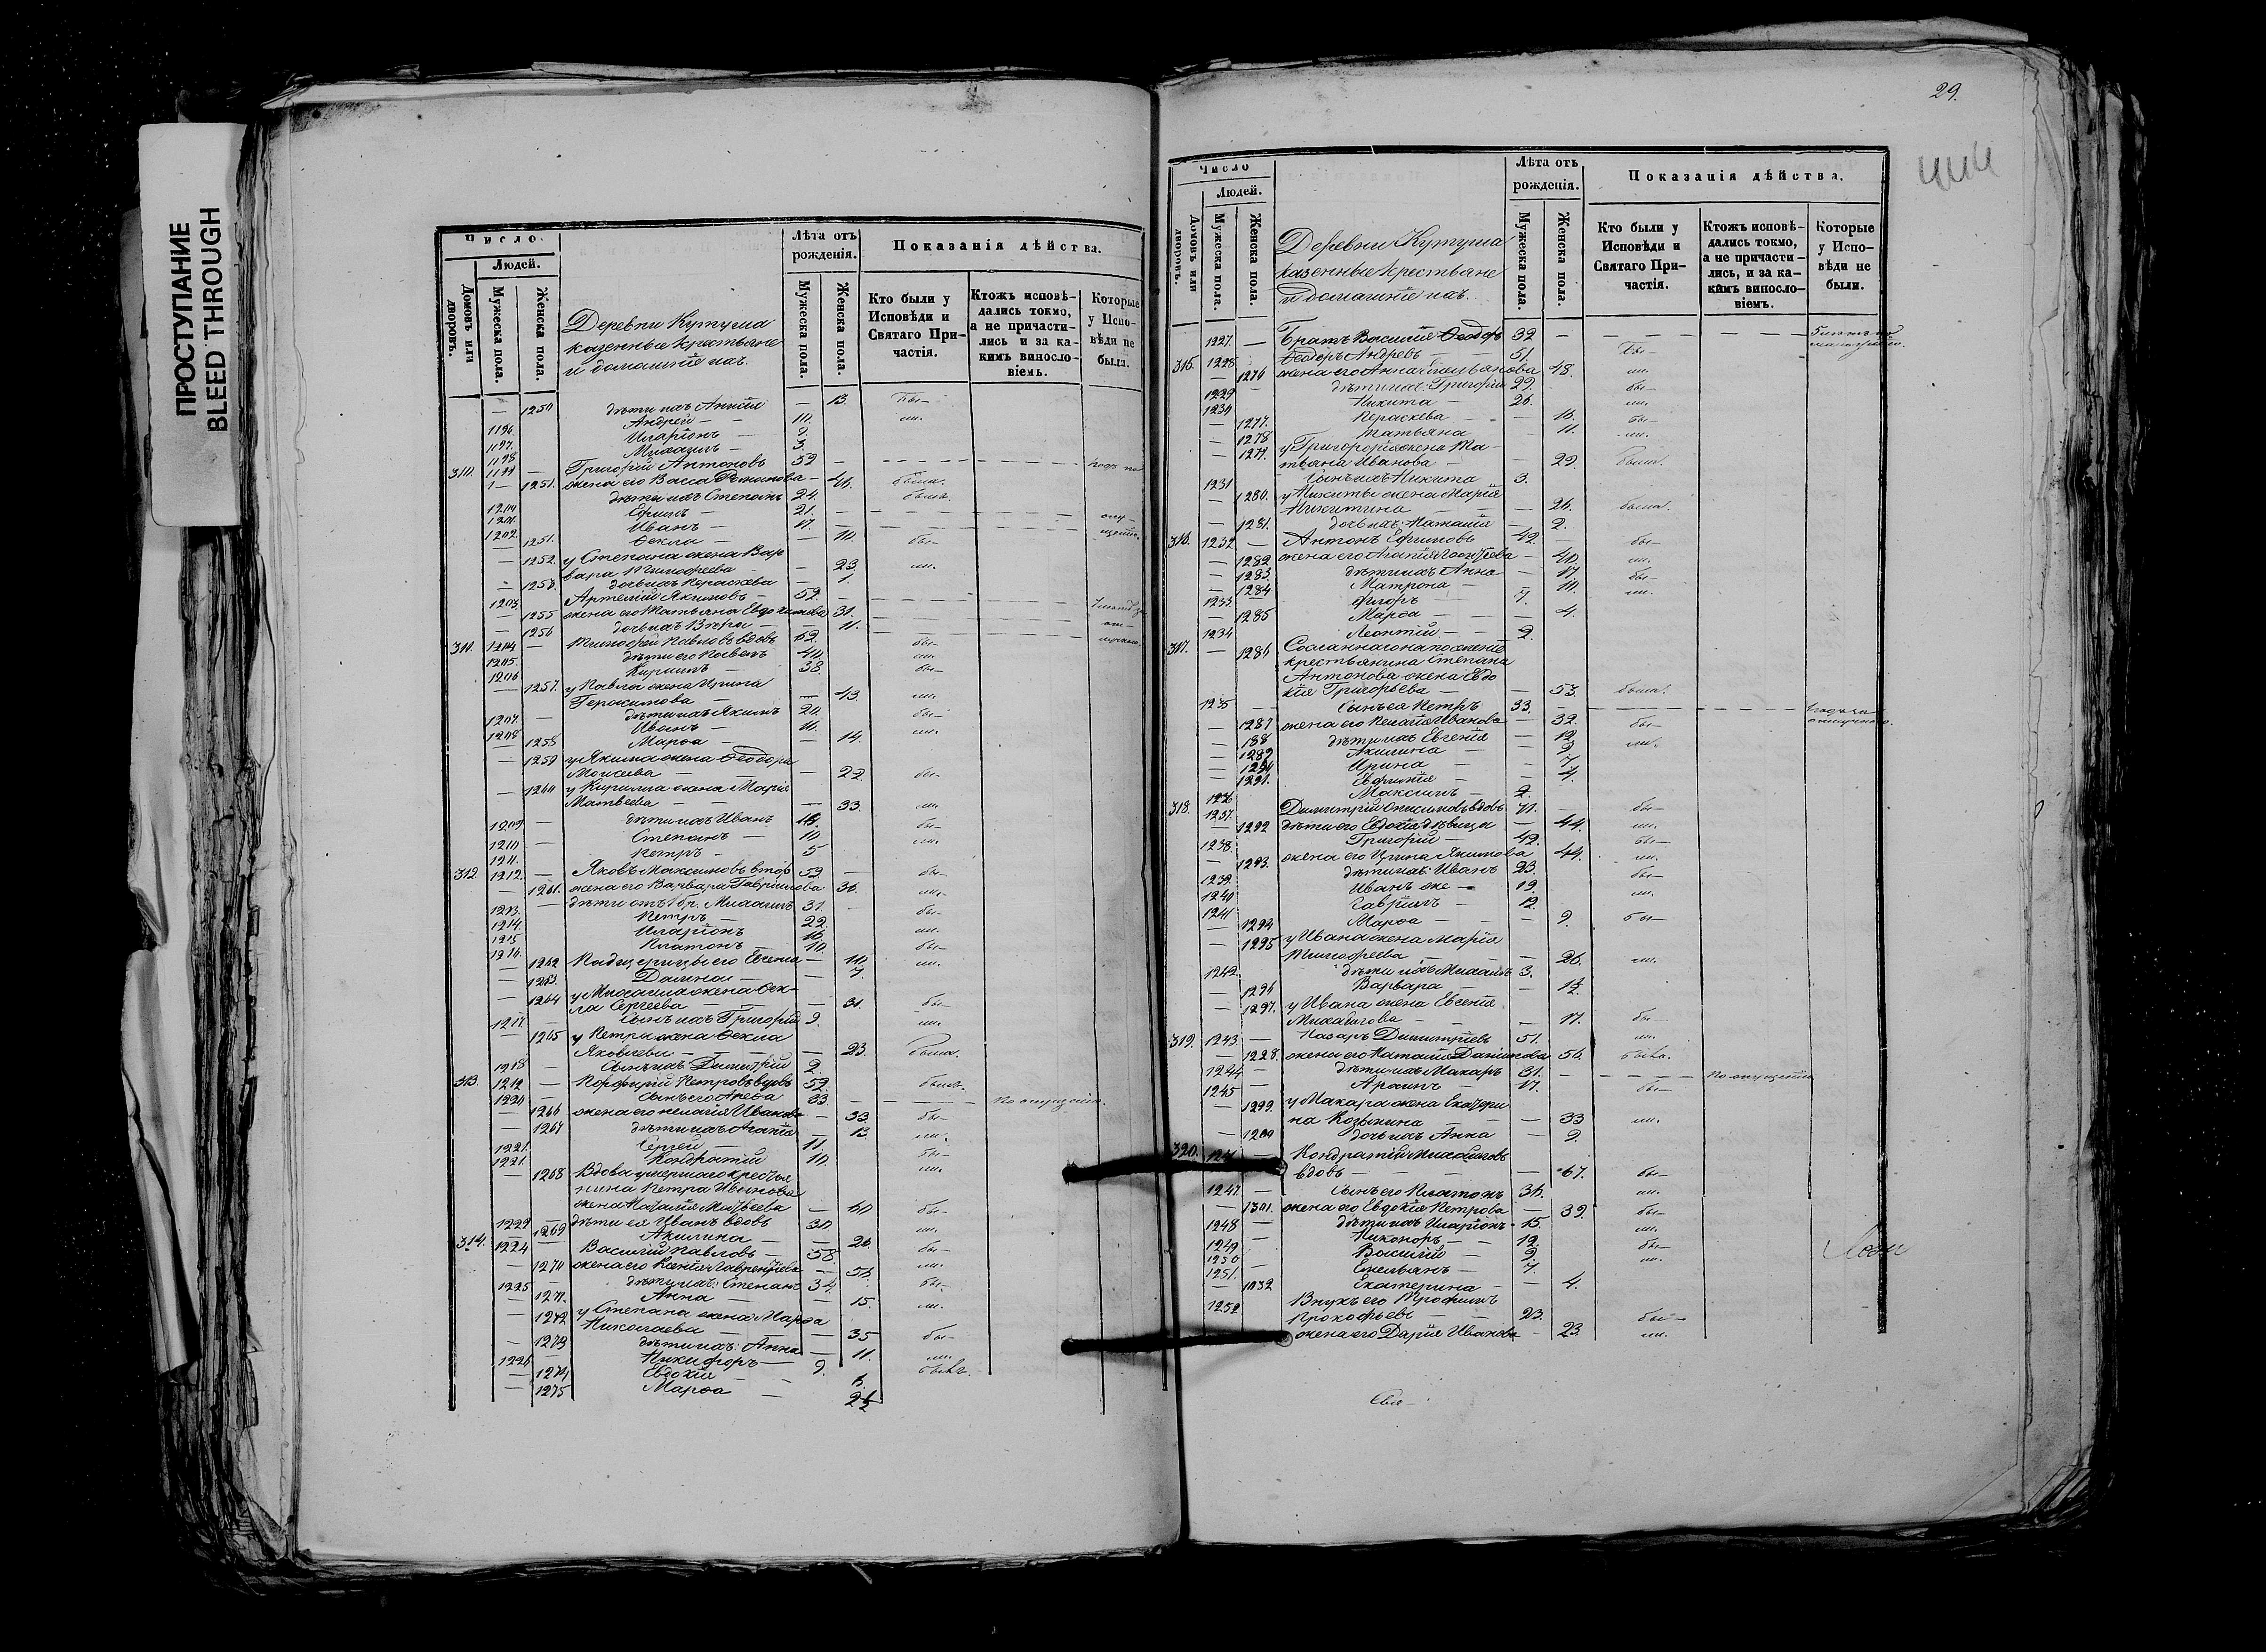 ПРОСТУПАНИЕ
BLEED THROUGH
Число
Людей.
Домовъ или дворовъ.
Мужеска пола.
Женска пола.
Деревни Кутуша
казенные крестьяне
и домашніе ихъ.
Лѣта отъ рожденія.
Мужеска пола.
Женска пола.
Показанія дѣйства.
Кто были у Исповѣди и Святаго Причастія.
Ктожъ исповѣдались токмо, а не причастились и за какимъ винословіемъ.
Которые у Исповѣди не были.
— 1250 дѣти ихъ — 13. бы—
1196. Андрей — 10. ли.
1197. Иларіонъ —
1198 Михаилъ — 3.
310. 1199 — Григорій Антоновъ 59 —
1251. жена его Васса — 46. были.
дѣти ихъ Степанъ 24. былъ.
Ефимъ — 21. —
1202. Иванъ — 17. —
1251. Ѳекла — — 10. бы—
— 1252. у Степана жена Вар
вара Тимофеева — — 23. ли.
— 1253. дочь ихъ Параскева — 1.
1203. Артемій Якимовъ — 52. —
— 1255 жена его Татьяна Евдокимова 31.
— 1256 дочь ихъ Вѣра — — 11.
311. 1204 — Тимофей Павловъ вдовъ 62. бы—
1205. дѣти его Павелъ 40. ли
1206. Кириллъ — 38. бы—
— 1257. у Павла жена Ирина
Герасимова — — 43. ли.
1207. — дѣти ихъ Якимъ 20. бы—
1208. Иванъ — ли.
— 1258 Марѳа — — 14.
— 1259 у Якима жена Ѳеодора
Моисеева — — 22. бы—
— 1260 у Кирилла жена Марія
Матвеева — — 33. ли.
1209. — дѣти ихъ Иванъ бы—
1210 — Степанъ — 10 ли.
1211. Петръ — 5
312 1212. — Яковъ Максимовъ 59 — бы—
— 1261. жена его Варвара Гавриилова 36. ли.
1213. — дѣти отъ 1 бр. Михаилъ 31. бы—
1214. Петръ — 22. ли.
1215 Иларіонъ 16.
1216. Платонъ — 10 бы—
— 1262 Падчерицы его Евгенія — 10 ли.
— 1263. — — 7.
— 1264 у Михаила жена Ѳек—
ла Сергеева — 31. бы—
1217 — сынъ ихъ Григорій 9. ли.
— 1265 у Петра жена Ѳекла
Яковлева — — 23. была.
1218 — сынъ ихъ Димитрій 2.
313. 1219 — Порфирій Петровъ вдовъ 59. былъ.
1220 — сынъ его 33 — по опущенію.
— 1266 жена его Пелагія Иванова — 33. бы—
— 1267 дѣти ихъ Агапія — 13. ли.
1221. Сергей — 11.
1221. Кондратій 10. бы—
— 1268 Вдова умершаго крестья
нина Петра Иванова
жена Наталія Матвеева — 60 бы—
1229 — дѣти ея Иванъ вдовъ 30 ли.
1269 Акилина — — 26.
314. 1224 — Василій Павловъ — 58. бы—
— 1270 жена его Ксенія Лаврентіева — 56. ли.
1225 дѣти ихъ: Степанъ 34. бы—
1271. Анна — — 15. ли.
— 1272 у Степана жена Марѳа
Николаева — — 35 бы—
— 1273 дѣти ихъ: Анна — 11. ли.
1226 Никифоръ — 9. былъ.
— 1274 Евдокія —
— 1275 Марѳа — 2½
29.
Число
Людей.
Домовъ или дворовъ.
Мужеска пола.
Женска пола.
Деревни Кутуша
казенные крестьяне
и домашніе ихъ.
Лѣта отъ рожденія.
Мужеска пола.
Женска пола.
Показанія дѣйства.
Кто были у Исповѣди и Святаго Причастія.
Ктожъ исповѣдались токмо, а не причастились, и за какимъ винословіемъ.
Которые у Исповѣди не были.
1227. — Братъ Василій Ѳеодор 32 —
315. 1228. Ѳеодоръ Андревъ — 51. бы—
— 1276 жена его Анна 48. ли.
1229 — дѣти ихъ: Григорій 29. бы—
1230 Никита — 26. ли.
— 1277. Пераскева — — 16. бы—
— 1278 Татьяна — 11. ли.
— 1279. у Григорія жена Та—
тьяна Иванова — — 29. была.
1231 сынъ ихъ Никита 3.
— 1280. у Никиты жена Марія
Никитина — — 26. была.
— 1281. дочь ихъ: Наталія — 2.
316. 1232 — Антонъ Ефимовъ 42. — бы—
— 1282 жена его Агапія — 40. ли.
— 1283. дѣти ихъ Анна — 17. бы—
— 1284 Матрона — — 10. ли.
1233. Флоръ — 7.
— 1285 Марѳа — — 4.
1234 Леонтій — — 2.
317. — 1286 Сосланнаго на поселеніе
крестьянина Степана
Антонова жена Евдо
кія Григорьева — — 53. была.
1235 — сынъ ея Петръ 33. —
— 1287 жена его Пелагія Иванова — 32. бы—
— 188 дѣти ихъ Евгенія — 12. ли.
— 1289 Акилина — — 9
— Ирина — — 7.
— 1291. Евфимія — — 4.
1236 Максимъ — 2.
318. 1237. Димитрій вдовъ 71. — бы—
— 1292 дѣти его Евдокія дѣвица — 44. ли.
1238. Григорій — 42. бы—
— 1293. жена его Ирина Якимова 44. ли.
1239. дѣти ихъ: Иванъ 23. бы—
1240 Иванъ же — 19. ли.
1241 Гавріилъ — 12.
— 1294 Марѳа — — 9. бы—
— 1295 у Ивана жена Марія
Тимофеева — — 26. ли.
1242. дѣти ихъ Михаилъ 3.
— 1296 Варвара — — 1½
— 1297. у Ивана жена Евгенія
Михайлова — — 17. бы—
319. 1243. — Назаръ Димитріевъ 51. ли.
— 1228. жена его Наталія Даниилова 56. была.
1244 — дѣти ихъ Макаръ 31. — по опущенію
1245 — 17. бы—
— 1299. у Макара жена Екатери
на Козьмина — — 33 ли.
— 1200 дочь ихъ Анна — 2.
320. — Кондратій Михайловъ
вдовъ — — 67. бы—
1247. — сынъ его Платонъ 36. ли.
— 1301. жена его Евдокія Петрова — 39. бы—
1248 — дѣти ихъ Иларіонъ 15. ли.
1249 — Никоноръ — 12. бы—
1250 Василій — 9. ли.
1251. — Емельянъ — 7.
— 1032 Екатерина — — 4.
1252 Внукъ его Трофимъ
Прокофьевъ — 23. бы—
жена его Дарія Иванова — 23. ли.